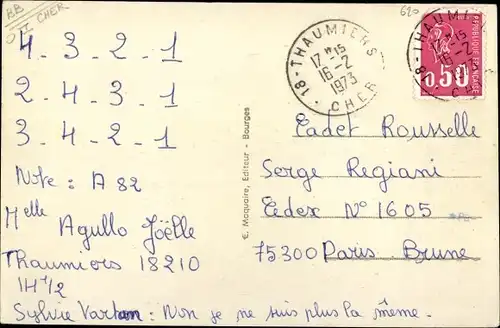 BB
OTT CHER
620
4 - 3 - 2 - 1
2 - 4 - 3 - 1
3 - 4 - 2 - 1
Note : A 82
Melle Agullo Joëlle
Thaumiers 18210
14 1/2
Sylvie Vartan : Non je ne suis plus la même.
E. Maquaire, Editeur - Bourges
18 - THAUMIERS
17 H 15
16 - 2
1973
CHER
18 - THAUMIERS
0,50
REPUBLIQUE FRANÇAISE
Cadet Rousselle
Serge Regiani
Cedex N° 1605
75300 Paris Brune